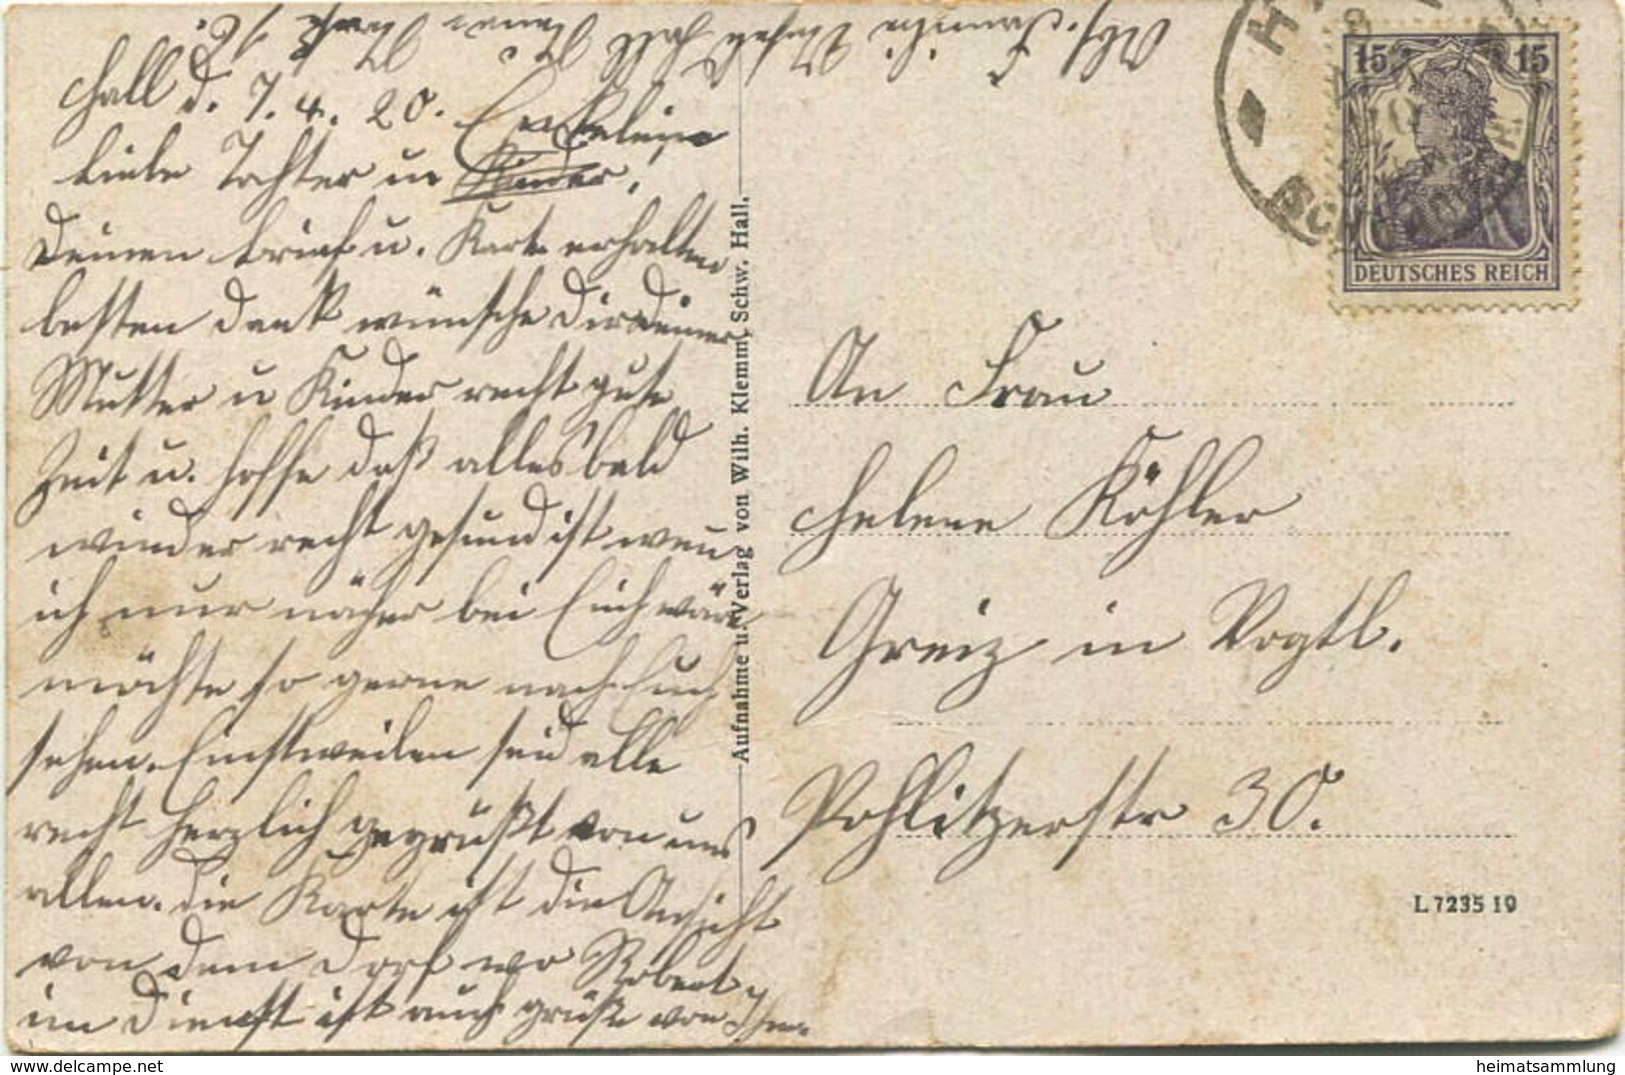 Hall d. 7.4.20.
Enkelein
Liebe Tochter u. Kinder,
Deinen Brief u. Karte erhalten
besten Dank wünsche Dir Deiner
Mutter u Kinder recht gute
Zeit u. hoffe daß alles bald
wieder recht gesund ist wen
ich nur näher bei Euch wäre
möchte so gerne nach Euch
sehen. Einstweilen seid alle
recht herzlich gegrüßt von uns
allen. die Karte ist die Ansicht
von dem Dorf wo Robert
im Dienst ist auch grüße von Ihm.
Aufnahme u. Verlag von Wilh. Klemm, Schw. Hall.
15 15
DEUTSCHES REICH
An Frau
Helene Köhler
Greiz in Vogtl.
Pohlitzerstr 30.
L 7235 19
heimatsammlung
https://www.delcampe.net